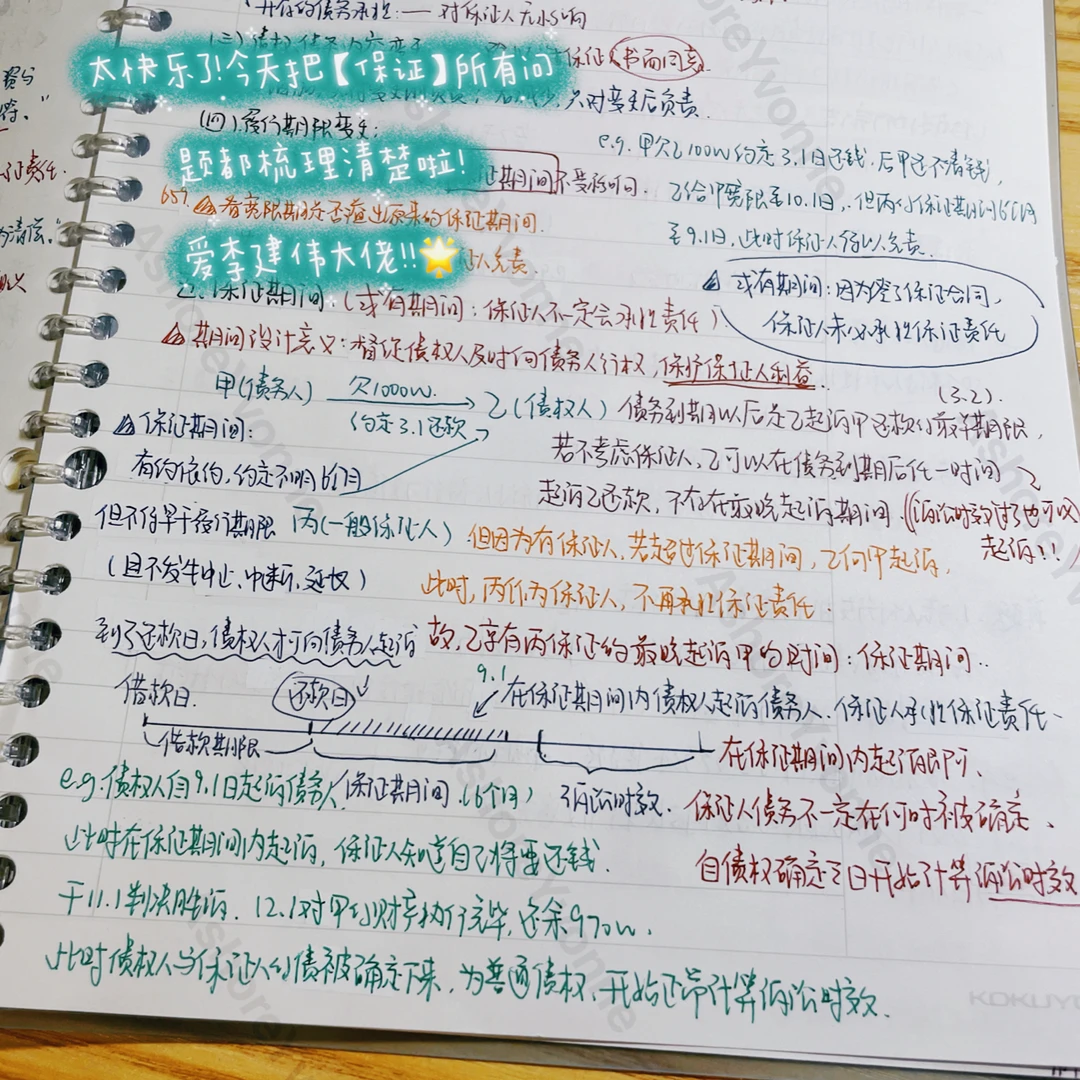 并存的债务承担:— 对保证人无影响
(三)债权债务
保证人(书面同意)
太快乐了!今天把【保证】所有问
只对变更后负责.
(四)履行期限变更:
题都梳理清楚啦!
期间不受影响.
e.g. 甲欠乙100w约定3.1日还钱,后甲还不清钱,
乙给甲宽限至10.1日,但丙的保证期间6个月
至9.1日,此时保证人得以免责.
657. 若宽限期是否超出原来的保证期间.
爱李建伟大佬!!🌟
证人免责
2. 保证期间(或有期间:保证人不一定会承担责任)
或有期间:因为签了保证合同,
保证人未必承担保证责任
期间设计意义:督促债权人及时向债务人行权,保护保证人利益.
(3.2)
甲(债务人) 欠1000w. 约定3.1还款 乙(债权人)
债务到期以后是乙起诉甲还款的最早期限,
若不考虑保证人,乙可以在债务到期后任一时间
起诉乙还款,不存在最晚起诉期间.((诉讼时效过了也可以
起诉!!)
保证期间:
有约依约,约定不明6个月
但不得早于履行期限
(且不发生中止、中断、延长)
丙(一般保证人)
但因为有保证人,若超过保证期间,乙向甲起诉,
此时,丙作为保证人,不再承担保证责任.
到了还款日,债权人才可向债务人起诉
故,乙享有丙保证的最晚起诉甲的时间:保证期间..
9.1
借款日.
还款日
在保证期间内债权人起诉债务人.保证人承担保证责任.
借款期限
保证期间.(6个月)
诉讼时效.
在保证期间内起诉即可、
保证人债务不一定在何时被确定、
自债权确定之日开始计算诉讼时效
e.g.债权人自9.1日起诉债务人
此时在保证期间内起诉,保证人知道自己将要还钱.
于11.1判决胜诉.12.1对甲的财产执行完毕,还余970w.
此时债权人与保证人的债被确定下来,为普通债权,开始正常计算诉讼时效.
KOKUYO
AshoreYvonne